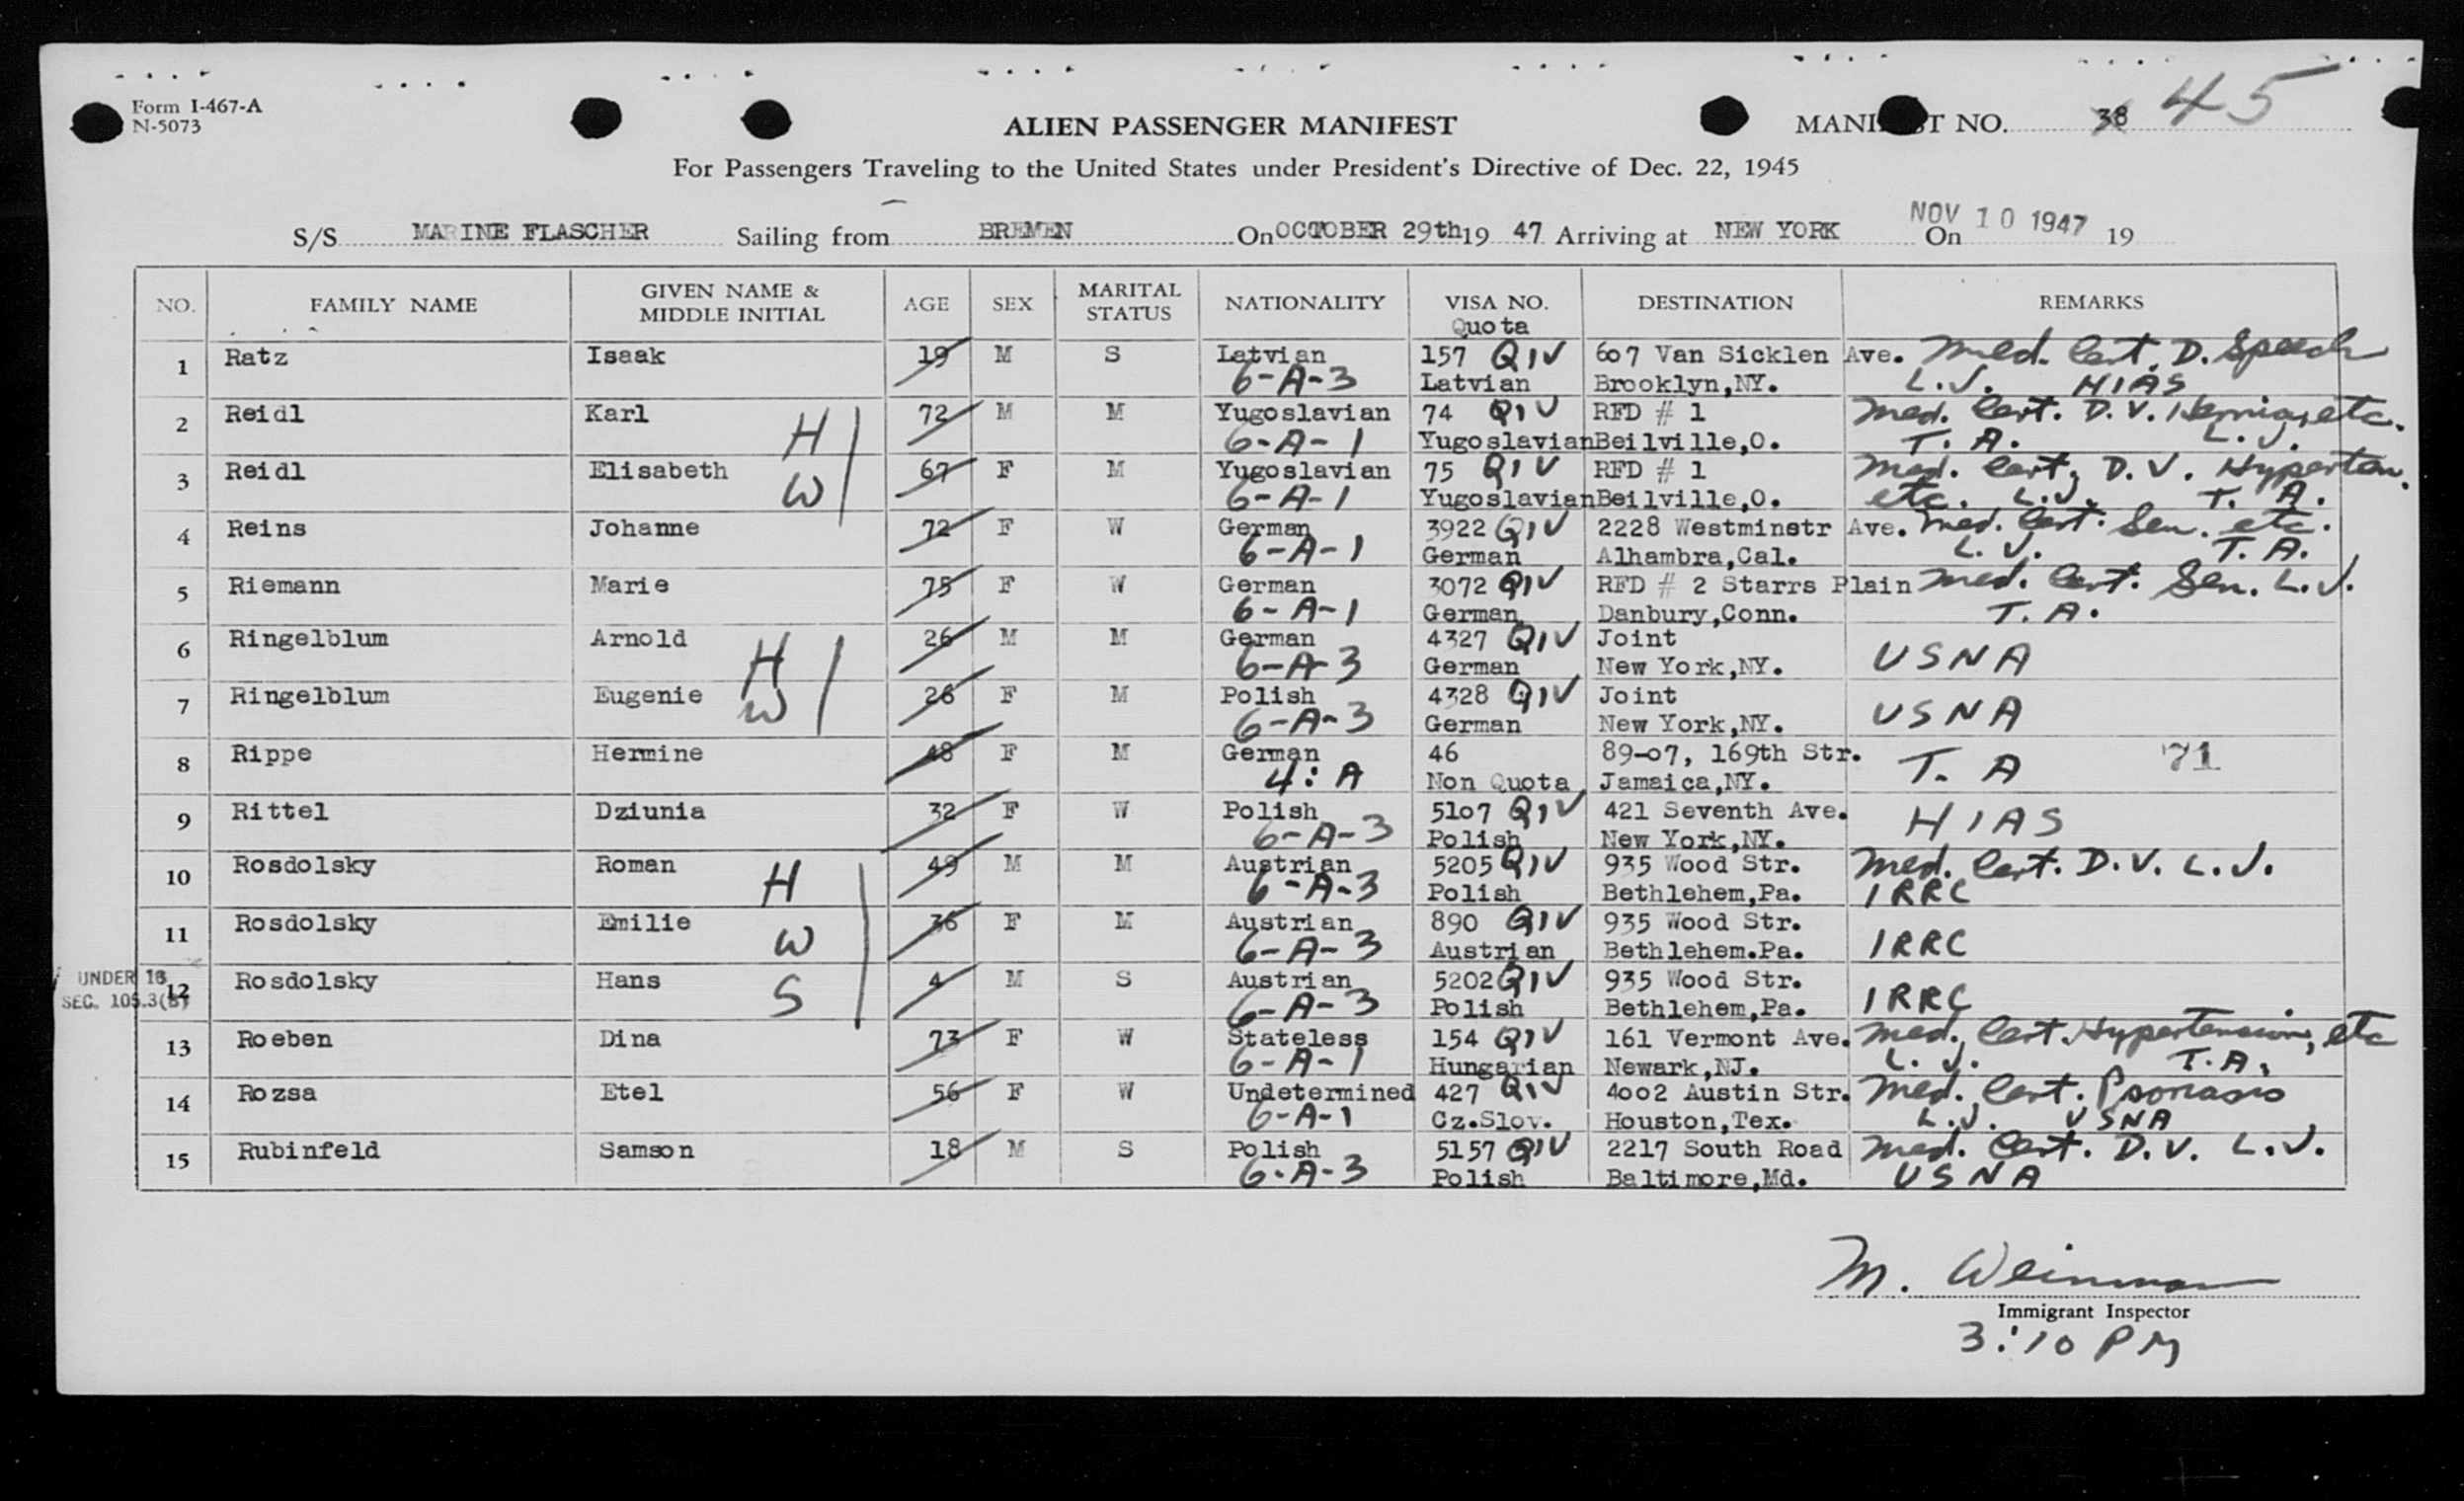 Form I-467-A
N-5073
ALIEN PASSENGER MANIFEST
MANIFEST NO. 38 45
For Passengers Traveling to the United States under President's Directive of Dec. 22, 1945
S/S MARINE FLASCHER Sailing from BREMEN On OCTOBER 29th 19 47 Arriving at NEW YORK On NOV 10 1947 19
NO. FAMILY NAME GIVEN NAME & MIDDLE INITIAL AGE SEX MARITAL STATUS NATIONALITY VISA NO. Quota DESTINATION REMARKS
1 Ratz Isaak 19 M S Latvian 157 QIV 607 Van Sicklen Ave. Med. Cert. D. Speech
6-A-3 Latvian Brooklyn,NY. L.J. HIAS
2 Reidl Karl H 72 M M Yugoslavian 74 QIV RFD # 1 Med. Cert. D.V. Hernia, etc.
6-A-1 Yugoslavian Beilville,O. T.A. L.J.
3 Reidl Elisabeth W 67 F M Yugoslavian 75 QIV RFD # 1 Med. Cert, D.V. Hyperten.
6-A-1 Yugoslavian Beilville,O. etc. L.J. T.A.
4 Reins Johanne 72 F W German 3922 QIV 2228 Westminstr Ave. Med. Cert. Sen. etc.
6-A-1 German Alhambra,Cal. L.J. T.A.
5 Riemann Marie 75 F W German 3072 QIV RFD # 2 Starrs Plain Med. Cert. Sen. L.J.
6-A-1 German Danbury,Conn. T.A.
6 Ringelblum Arnold H 26 M M German 4327 QIV Joint USNA
6-A-3 German New York,NY.
7 Ringelblum Eugenie W 26 F M Polish 4328 QIV Joint USNA
6-A-3 German New York,NY.
8 Rippe Hermine 48 F M German 46 89-07, 169th Str. T. A 71
4:A Non Quota Jamaica,NY.
9 Rittel Dziunia 32 F W Polish 5107 QIV 421 Seventh Ave. HIAS
6-A-3 Polish New York,NY.
10 Rosdolsky Roman H 49 M M Austrian 5205 QIV 935 Wood Str. Med. Cert. D.V. L.J.
6-A-3 Polish Bethlehem,Pa. IRRC
11 Rosdolsky Emilie W 36 F M Austrian 890 QIV 935 Wood Str.
6-A-3 Austrian Bethlehem.Pa. IRRC
UNDER 16 12 Rosdolsky Hans S 4 M S Austrian 5202 QIV 935 Wood Str.
SEC. 105.3(B) 6-A-3 Polish Bethlehem,Pa. IRRC
13 Roeben Dina 73 F W Stateless 154 QIV 161 Vermont Ave. Med. Cert. Hypertension, etc
6-A-1 Hungarian Newark,NJ. L.J. T.A.
14 Rozsa Etel 56 F W Undetermined 427 QIV 4002 Austin Str. Med. Cert. Psoriasis
6-A-1 Cz.Slov. Houston,Tex. L.J. USNA
15 Rubinfeld Samson 18 M S Polish 5157 QIV 2217 South Road Med. Cert. D.V. L.J.
6-A-3 Polish Baltimore,Md. USNA
M. Weinman
Immigrant Inspector
3:10 PM